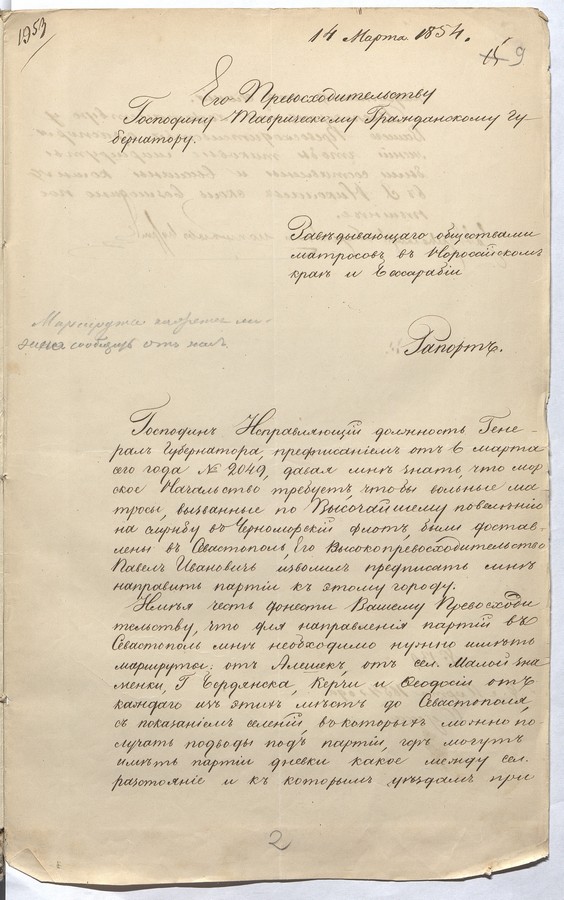 1953
14 Марта 1854.
9
Его Превосходительству
Господину Таврическому Гражданскому Гу
бернатору.
Заведывающаго обществами
матросовъ въ Новоросийскомъ
краѣ и Бессарабіи
Рапортъ.
Господинъ Исправляющій должность Гене-
ралъ Губернатора, предписаніемъ отъ 6 марта
сего года № 2049, давая мнѣ знать, что мор
ское Начальство требуетъ, чтобы вольные ма
тросы, вызванные по Высочайшему повелѣнію
на службу въ Черноморскій флотъ, были достав-
лены въ Севастополь, Его Высокопревосходительство
Павелъ Ивановичъ изволилъ предписать мнѣ
направить партіи къ этому городу.
Имѣя честь донести Вашему Превосходи
тельству, что для направленія партій въ
Севастополь мнѣ необходимо нужно имѣть
маршруты: отъ Алешекъ, отъ сел. Малой Зна
менки, Г Бердянска, Керчи и Ѳеодосіи отъ
каждаго изъ этихъ мѣстъ до Севастополя,
съ показаніемъ селеній въ которыхъ можно по-
лучать подводы подъ партіи, гдѣ могутъ
имѣть партіи дневки какое между сел.
разстояніе и къ которымъ уѣздамъ при
2